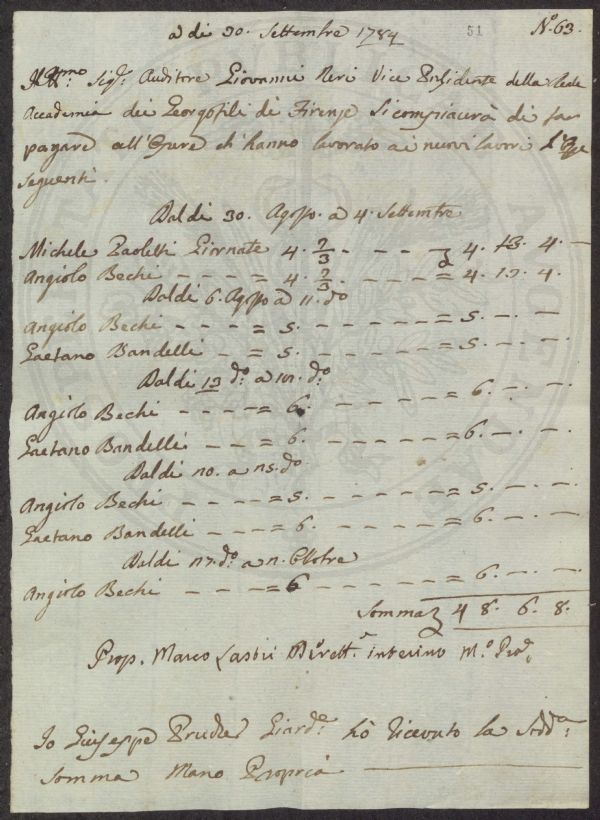 a di 30. Settembre 1784
51
N.º 63.
Ill.mo Sig.r Auditore Giovanni Neri Vice Presidente della Reale
Accademia dei Georgofili di Firenze Si compiacerà di far
pagare all'Opere ch'hanno lavorato ai nuovi lavori
Seguenti.
Dal di 30. Agosto. a 4. Settembre
Michele Paoletti Giornate 4. 2/3 - - - 4. 13. 4. -
Angiolo Bechi - - - = 4. 2/3 - - - = 4. 13. 4.
Dal di 6. Agosto a 11. d.o
Angiolo Bechi - - - = 5. - - - = 5. - -
Gaetano Bandelli - = 5. - - - = 5. - -
Dal di 13 d.o a 18. d.o
Angiolo Bechi - - - = 6. - - - 6. - -
Gaetano Bandelli - - = 6. - - - = 6. - -
Dal di 20. a 25. d.o
Angiolo Bechi - - - = 5. - - - = 5. - -
Gaetano Bandelli - - = 6. - - - = 6. - -
Dal di 27. d.o a 2. Ottobre
Angiolo Bechi - - - = 6 - - - = 6. - -
Somma 48. 6. 8.
Prop. Marco Lastri Dirett.r interino M.o Pro.
Io Giuseppe Giard.e hò ricevuto la Sudd.a
Somma Mano Propria